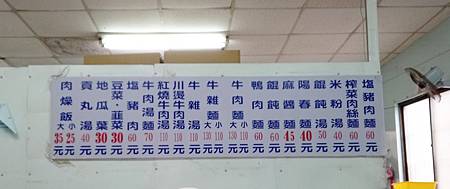 塩豬肉麵60元
榨菜肉絲麵60元
米粉湯40元
餛飩湯50元
陽春麵40元
麻醬麵45元
餛飩麵60元
鴨肉麵60元
牛肉麵大小130 110元
牛雜麵大小130 110元
牛雜湯110元
川燙牛肉湯110元
紅燒牛肉湯110元
牛肉湯麵70元
塩豬肉60元
豆菜·韮菜30元
地瓜葉30元
貢丸湯40元
肉燥飯大小35 25元